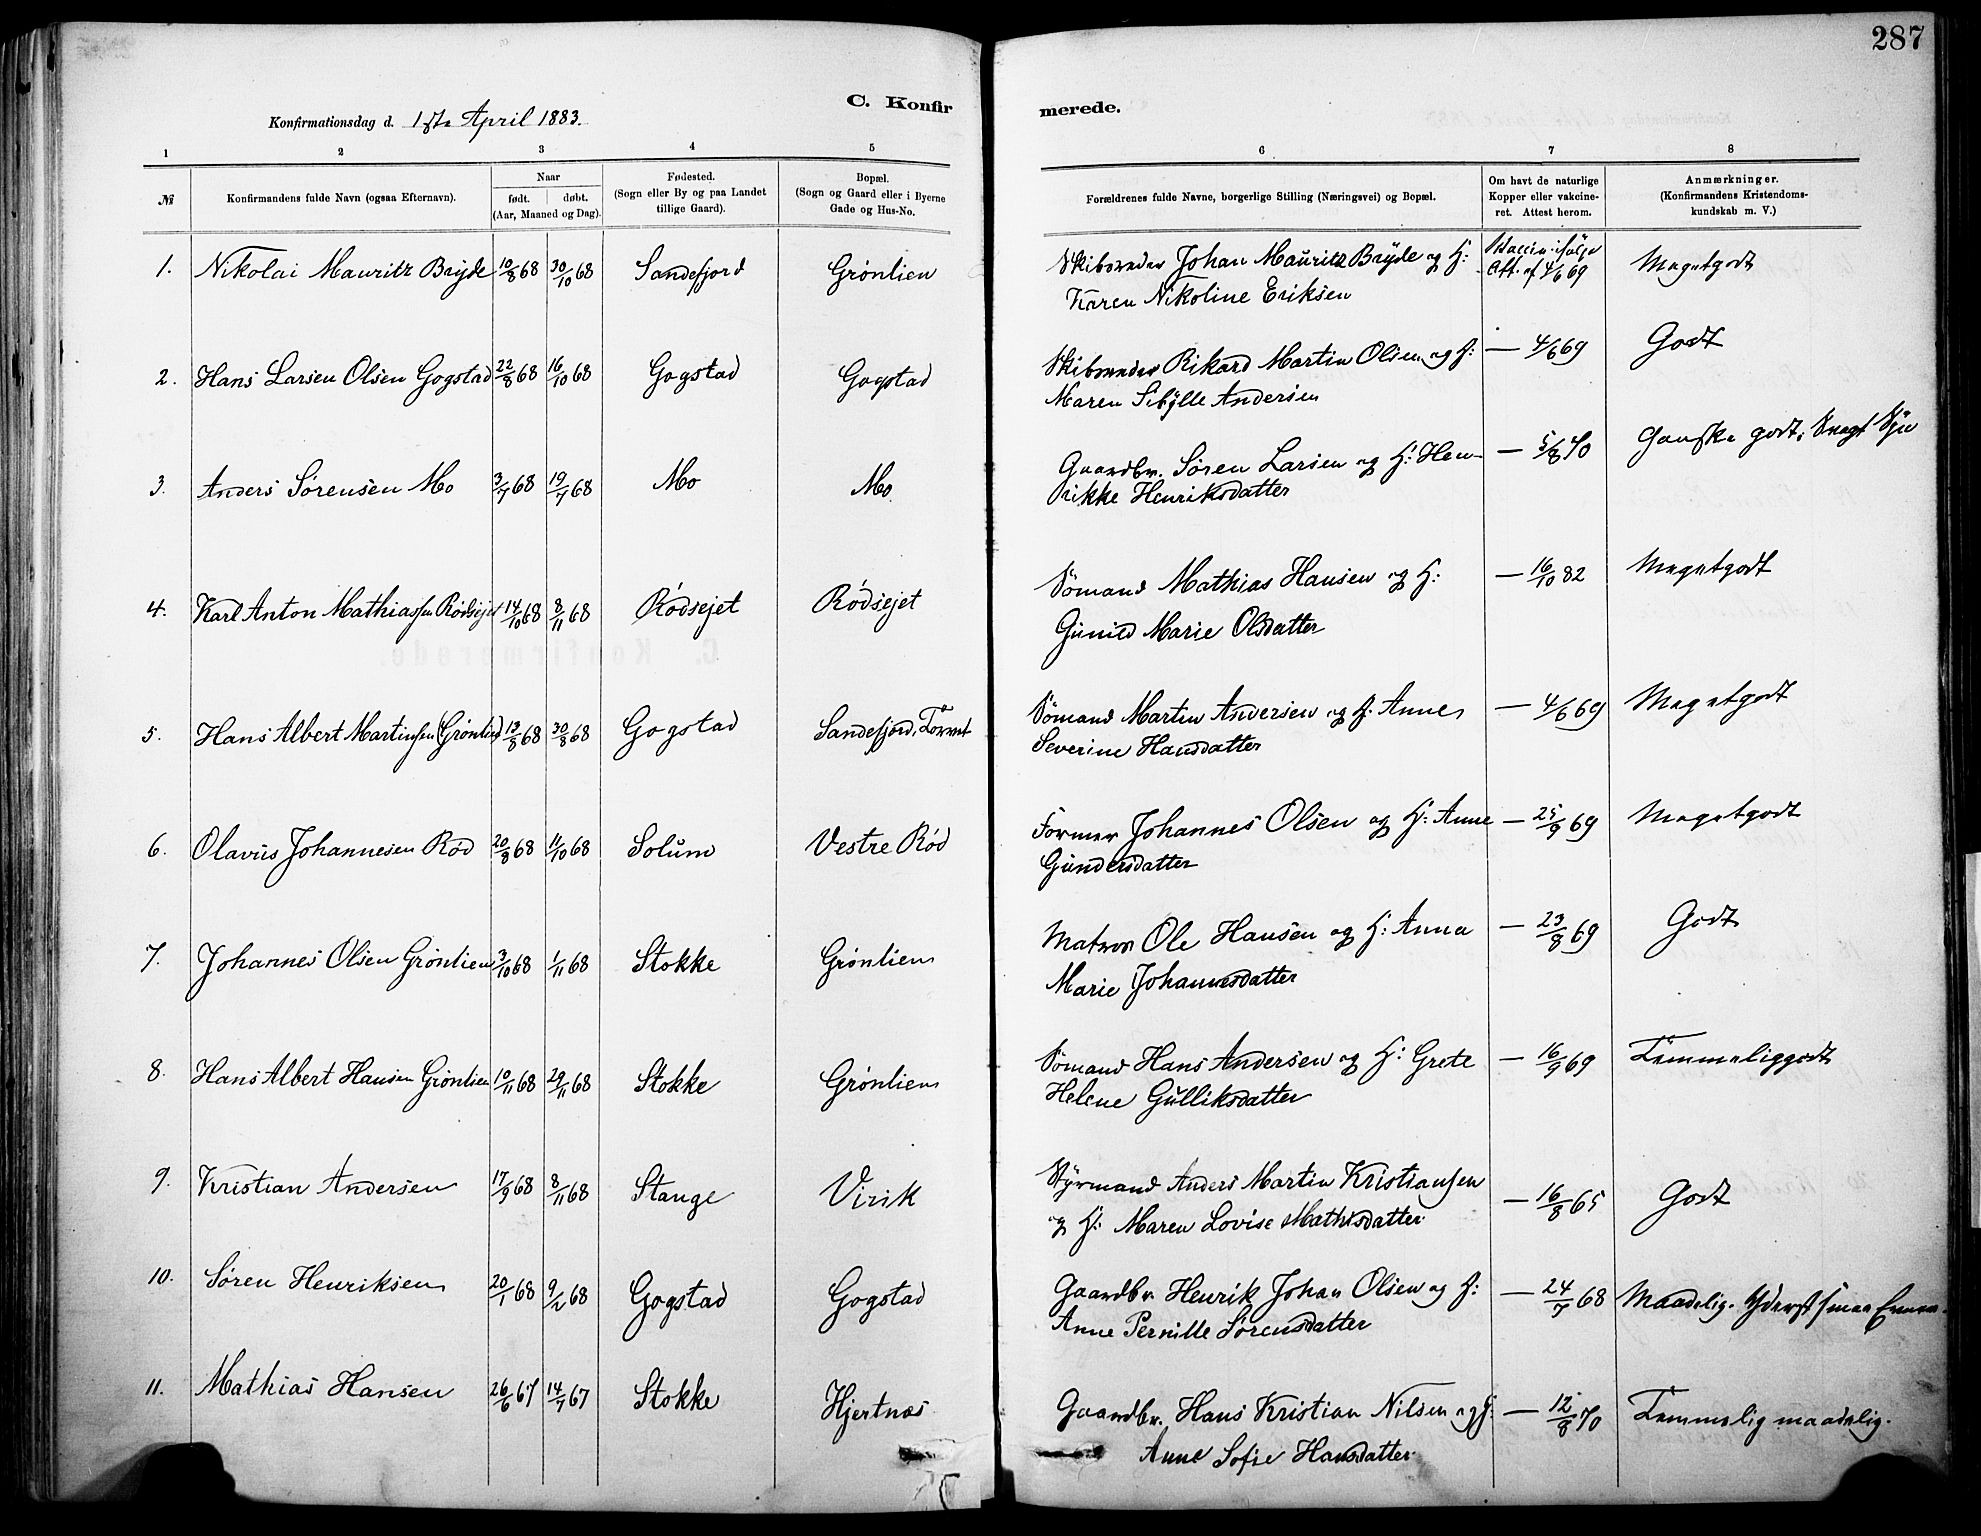 287
C. Konfirmerede.
Konfirmationsdag d. 1ste April 1883.
1 2 3 4 5 6 7 8
№
Konfirmandens fulde Navn (ogsaa Efternavn).
Naar
født. døbt.
(Aar, Maaned og Dag).
Fødested.
(Sogn eller By og paa Landet
tillige Gaard).
Bopæl.
(Sogn og Gaard eller i Byerne
Gade og Hus-No.
Forældrenes fulde Navne, borgerlige Stilling (Næringsvei) og Bopæl.
Om havt de naturlige
Kopper eller vakcine-
ret. Attest herom.
Anmærkninger.
(Konfirmandens Kristendoms-
kundskab m. V.)
1. Nikolai Mauritz Bryde 10/8 68 30/10 68 Sandefjord Grønlien Skibsreder Johan Mauritz Bryde og H: Vaccin. ifølge Meget godt
Karen Nikoline Eriksen Att. af 4/6 69
2. Hans Larsen Olsen Gogstad 22/8 68 16/10 68 Gogstad Gogstad Skibsreder Rikard Martin Olsen og H: — 4/6 69 Godt
Maren Sibylle Andersen
3. Anders Sørensen Mo 3/7 68 19/7 68 Mo Mo Gaardbr. Søren Larsen og H: Hen- — 5/8 70 Ganske godt,
rikke Henriksdatter
4. Karl Anton Mathiassen Rødsejet 14/10 68 8/11 68 Rødsejet Rødsejet Sømand Mathias Hansen og H: — 16/10 82 Meget godt
Gunild Marie Olsdatter
5. Hans Albert Martinsen (Grønlie) 13/8 68 30/8 68 Gogstad Sandefjord, Torvet Sømand Martin Andersen og H: Anne — 4/6 69 Meget godt
Severine Hansdatter
6. Olavus Johannesen Rød 20/8 68 11/10 68 Solum Vestre Rød Former Johannes Olsen og H: Anne — 25/9 69 Meget godt
Gundersdatter
7. Johannes Olsen Grønlien 3/10 68 1/11 68 Stokke Grønlien Matros Ole Hansen og H: Anna — 23/8 69 Godt
Marie Johannesdatter
8. Hans Albert Hansen Grønlien 10/11 68 29/11 68 Stokke Grønlien Sømand Hans Andersen og H: Grete — 16/9 69 Temmelig godt
Helene Gulliksdatter
9. Kristian Andersen 17/9 68 8/11 68 Stange Virik Styrmand Anders Martin Kristiansen — 16/8 65 Godt
og H: Maren Lovise Mathisdatter
10. Søren Henriksen 20/1 68 9/2 68 Gogstad Gogstad Gaardbr. Henrik Johan Olsen og H: — 24/7 68 Maadelig. Yderst smaa
Anne Pernille Sørensdatter
11. Mathias Hansen 26/6 67 14/7 67 Stokke Hjertnæs Gaardbr. Hans Kristian Nilsen og H: — 12/8 70 Temmelig maadelig.
Anne Sofie Hansdatter